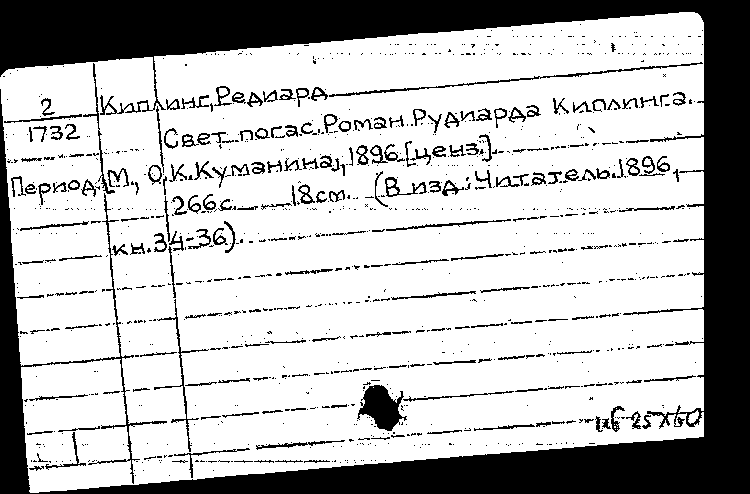 2 Киплинг, Редиард
1732 Свет погас. Роман Рудиарда Киплинга.
Период. [М., О.К. Куманина, 1896 [ценз.].
266 с. 18 см. (В изд.: Читатель. 1896,
кн. 34-36).